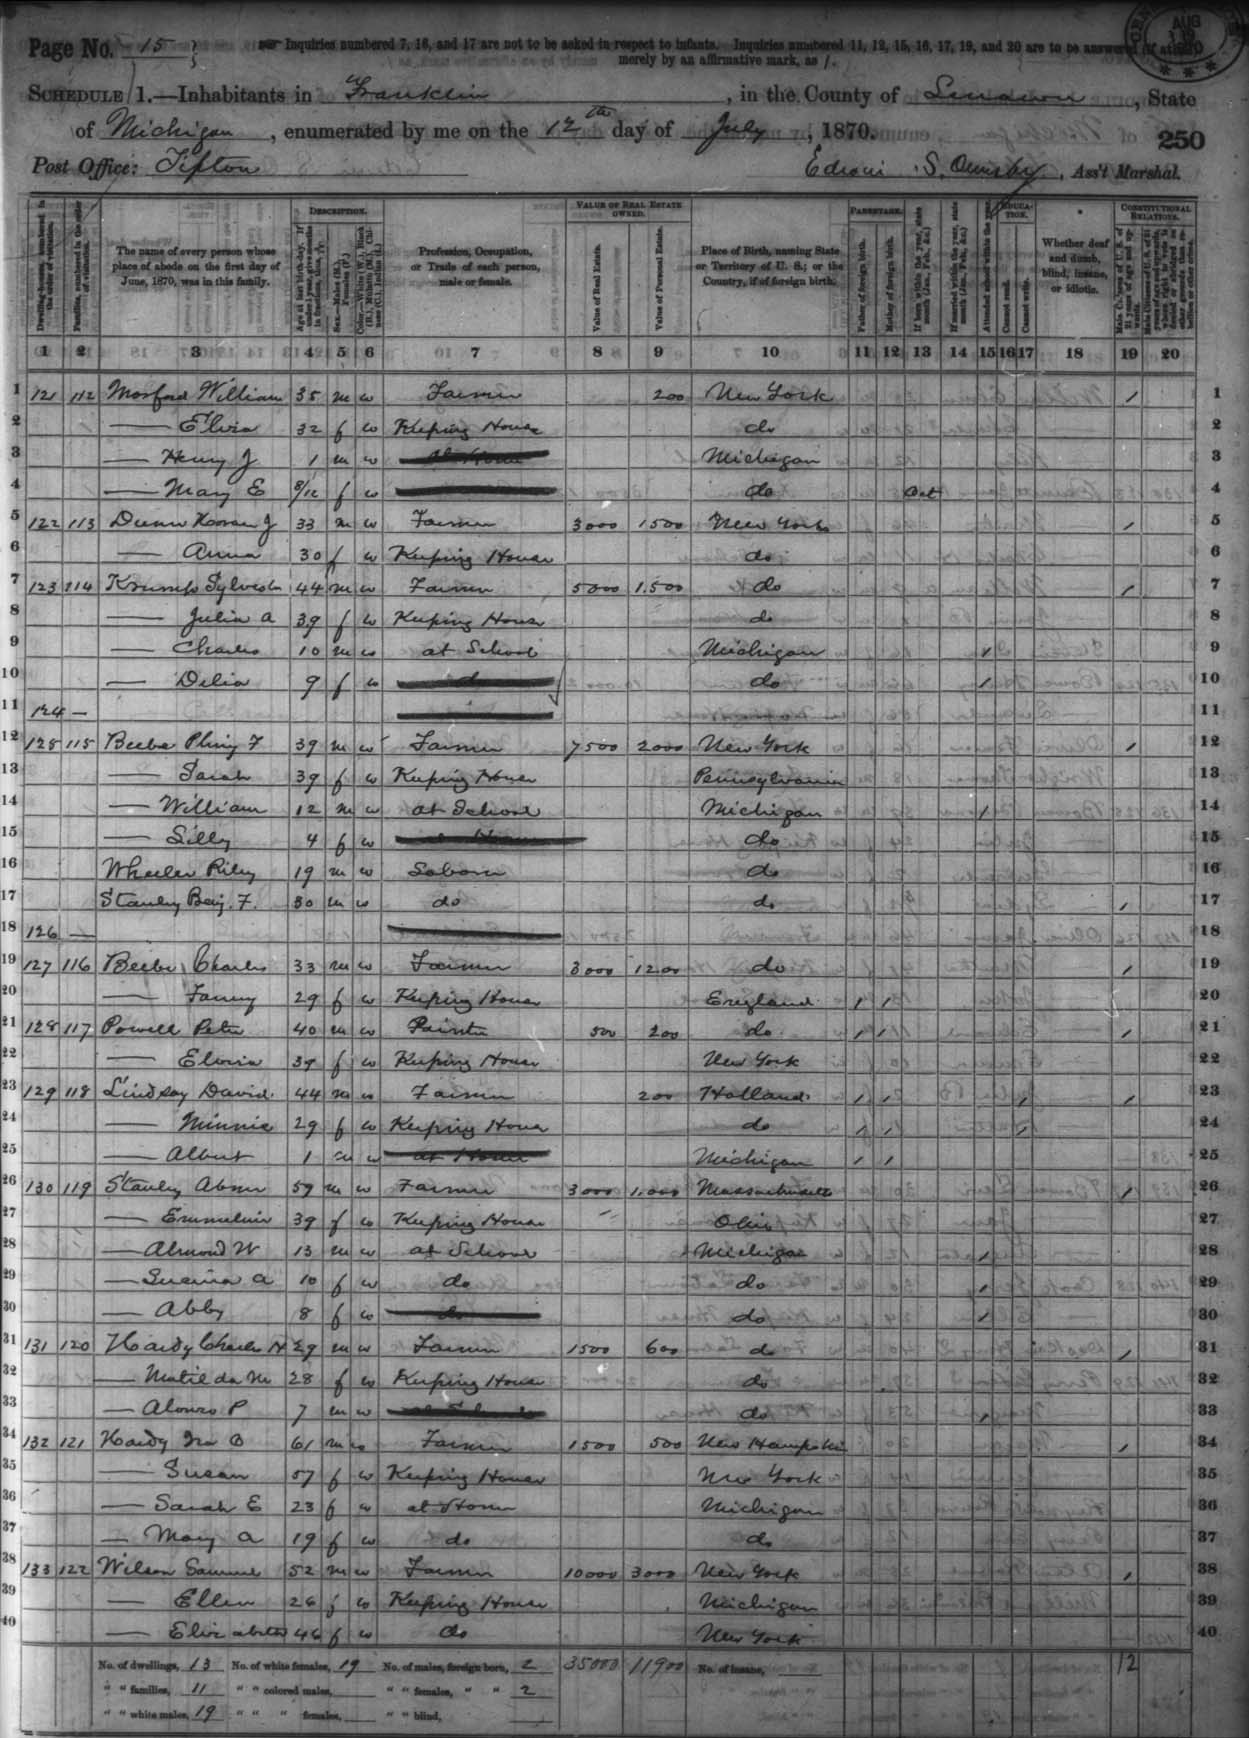 Page No. 15
Inquiries numbered 7, 16, and 17 are not to be asked in respect to infants. Inquiries numbered 11, 12, 15, 16, 17, 19, and 20 are to be answered (if at all)
merely by an affirmative mark, as /.
AUG
Schedule 1.—Inhabitants in Franklin, in the County of Lenawee, State
of Michigan, enumerated by me on the 12th day of July, 1870.
250
Post Office: Tipton
Edwin S. Ormsby, Ass't Marshal.
Dwelling-houses, numbered in the order of visitation.
Families, numbered in the order of visitation.
The name of every person whose place of abode on the first day of June, 1870, was in this family.
Description.
Age at last birth-day. If under 1 year, give months in fractions, thus, 3/12.
Sex.—Males (M.), Females (F.)
Color.—White (W.), Black (B.), Mulatto (M.), Chinese (C.), Indian (I.)
Profession, Occupation, or Trade of each person, male or female.
Value of Real Estate owned.
Value of Real Estate.
Value of Personal Estate.
Place of Birth, naming State or Territory of U. S.; or the Country, if of foreign birth.
Parentage.
Father of foreign birth.
Mother of foreign birth.
If born within the year, state month (Jan. Feb., &c.)
If married within the year, state month (Jan. Feb., &c.)
Education.
Attended school within the year.
Cannot read.
Cannot write.
Whether deaf and dumb, blind, insane, or idiotic.
Constitutional Relations.
Male Citizens of U. S. of 21 years of age and upwards.
Male Citizens of U. S. of 21 years of age and upwards, whose right to vote is denied or abridged on other grounds than rebellion or other crime.
1 2 3 4 5 6 7 8 9 10 11 12 13 14 15 16 17 18 19 20
1 121 112 Morford William 35 m w Farmer 200 New York / 1
2 — Elvia 32 f w Keeping House do 2
3 — Henry J 1 m w Michigan 3
4 — Mary E 8/12 f w do Oct 4
5 122 113 33 m w Farmer 3000 1500 New York / 5
6 — Anna 30 f w Keeping House do 6
7 123 114 Sylvester 44 m w Farmer 5000 1500 do / 7
8 — Julia A 39 f w Keeping House do 8
9 — Charles 10 m w at School Michigan / 9
10 — Delia 9 f w do / 10
11 124 — 11
12 125 115 Beebe Pliny F 39 m w Farmer 7500 2000 New York / 12
13 — Sarah 39 f w Keeping House Pennsylvania 13
14 — William 12 m w at School Michigan / 14
15 — Lilly 4 f w do 15
16 Wheeler Riley 19 m w Laborer do 16
17 Stanley Benj. F. 30 m w do do / 17
18 126 — 18
19 127 116 Beebe Charles 33 m w Farmer 3000 1200 do / 19
20 — Fanny 29 f w Keeping House England / / 20
21 128 117 Powell Peter 40 m w Painter 500 200 do / / / 21
22 — Elvira 39 f w Keeping House New York 22
23 129 118 Lindsay David 44 m w Farmer 200 Holland / / / / 23
24 — Minnie 29 f w Keeping House do / / / 24
25 — Albert 1 m w at Home Michigan / / 25
26 130 119 Stanley Abner 59 m w Farmer 3000 1.000 Massachusetts / 26
27 — Emmeline 39 f w Keeping House Ohio 27
28 — Almond W 13 m w at School Michigan / 28
29 — A 10 f w do do / 29
30 — Abby 8 f w do do / 30
31 131 120 Hardy Charles H 29 m w Farmer 1500 600 do / 31
32 — Matilda M 28 f w Keeping House do 32
33 — Alonzo P 7 m w do / 33
34 132 121 Hardy Ira O 61 m w Farmer 1500 500 New Hampshire / 34
35 — Susan 57 f w Keeping House New York 35
36 — Sarah E 23 f w at Home Michigan 36
37 — Mary A 19 f w do do 37
38 133 122 Wilson Samuel 52 m w Farmer 10000 3000 New York / 38
39 — Ellen 26 f w Keeping House Michigan 39
40 — Elizabeth 46 f w do New York 40
No. of dwellings, 13 No. of white females, 19 No. of males, foreign born, 2 35000 11900 No. of insane, 12
" " families, 11 " " colored males, " " females, " " 2
" " white males, 19 " " " females, " " blind,